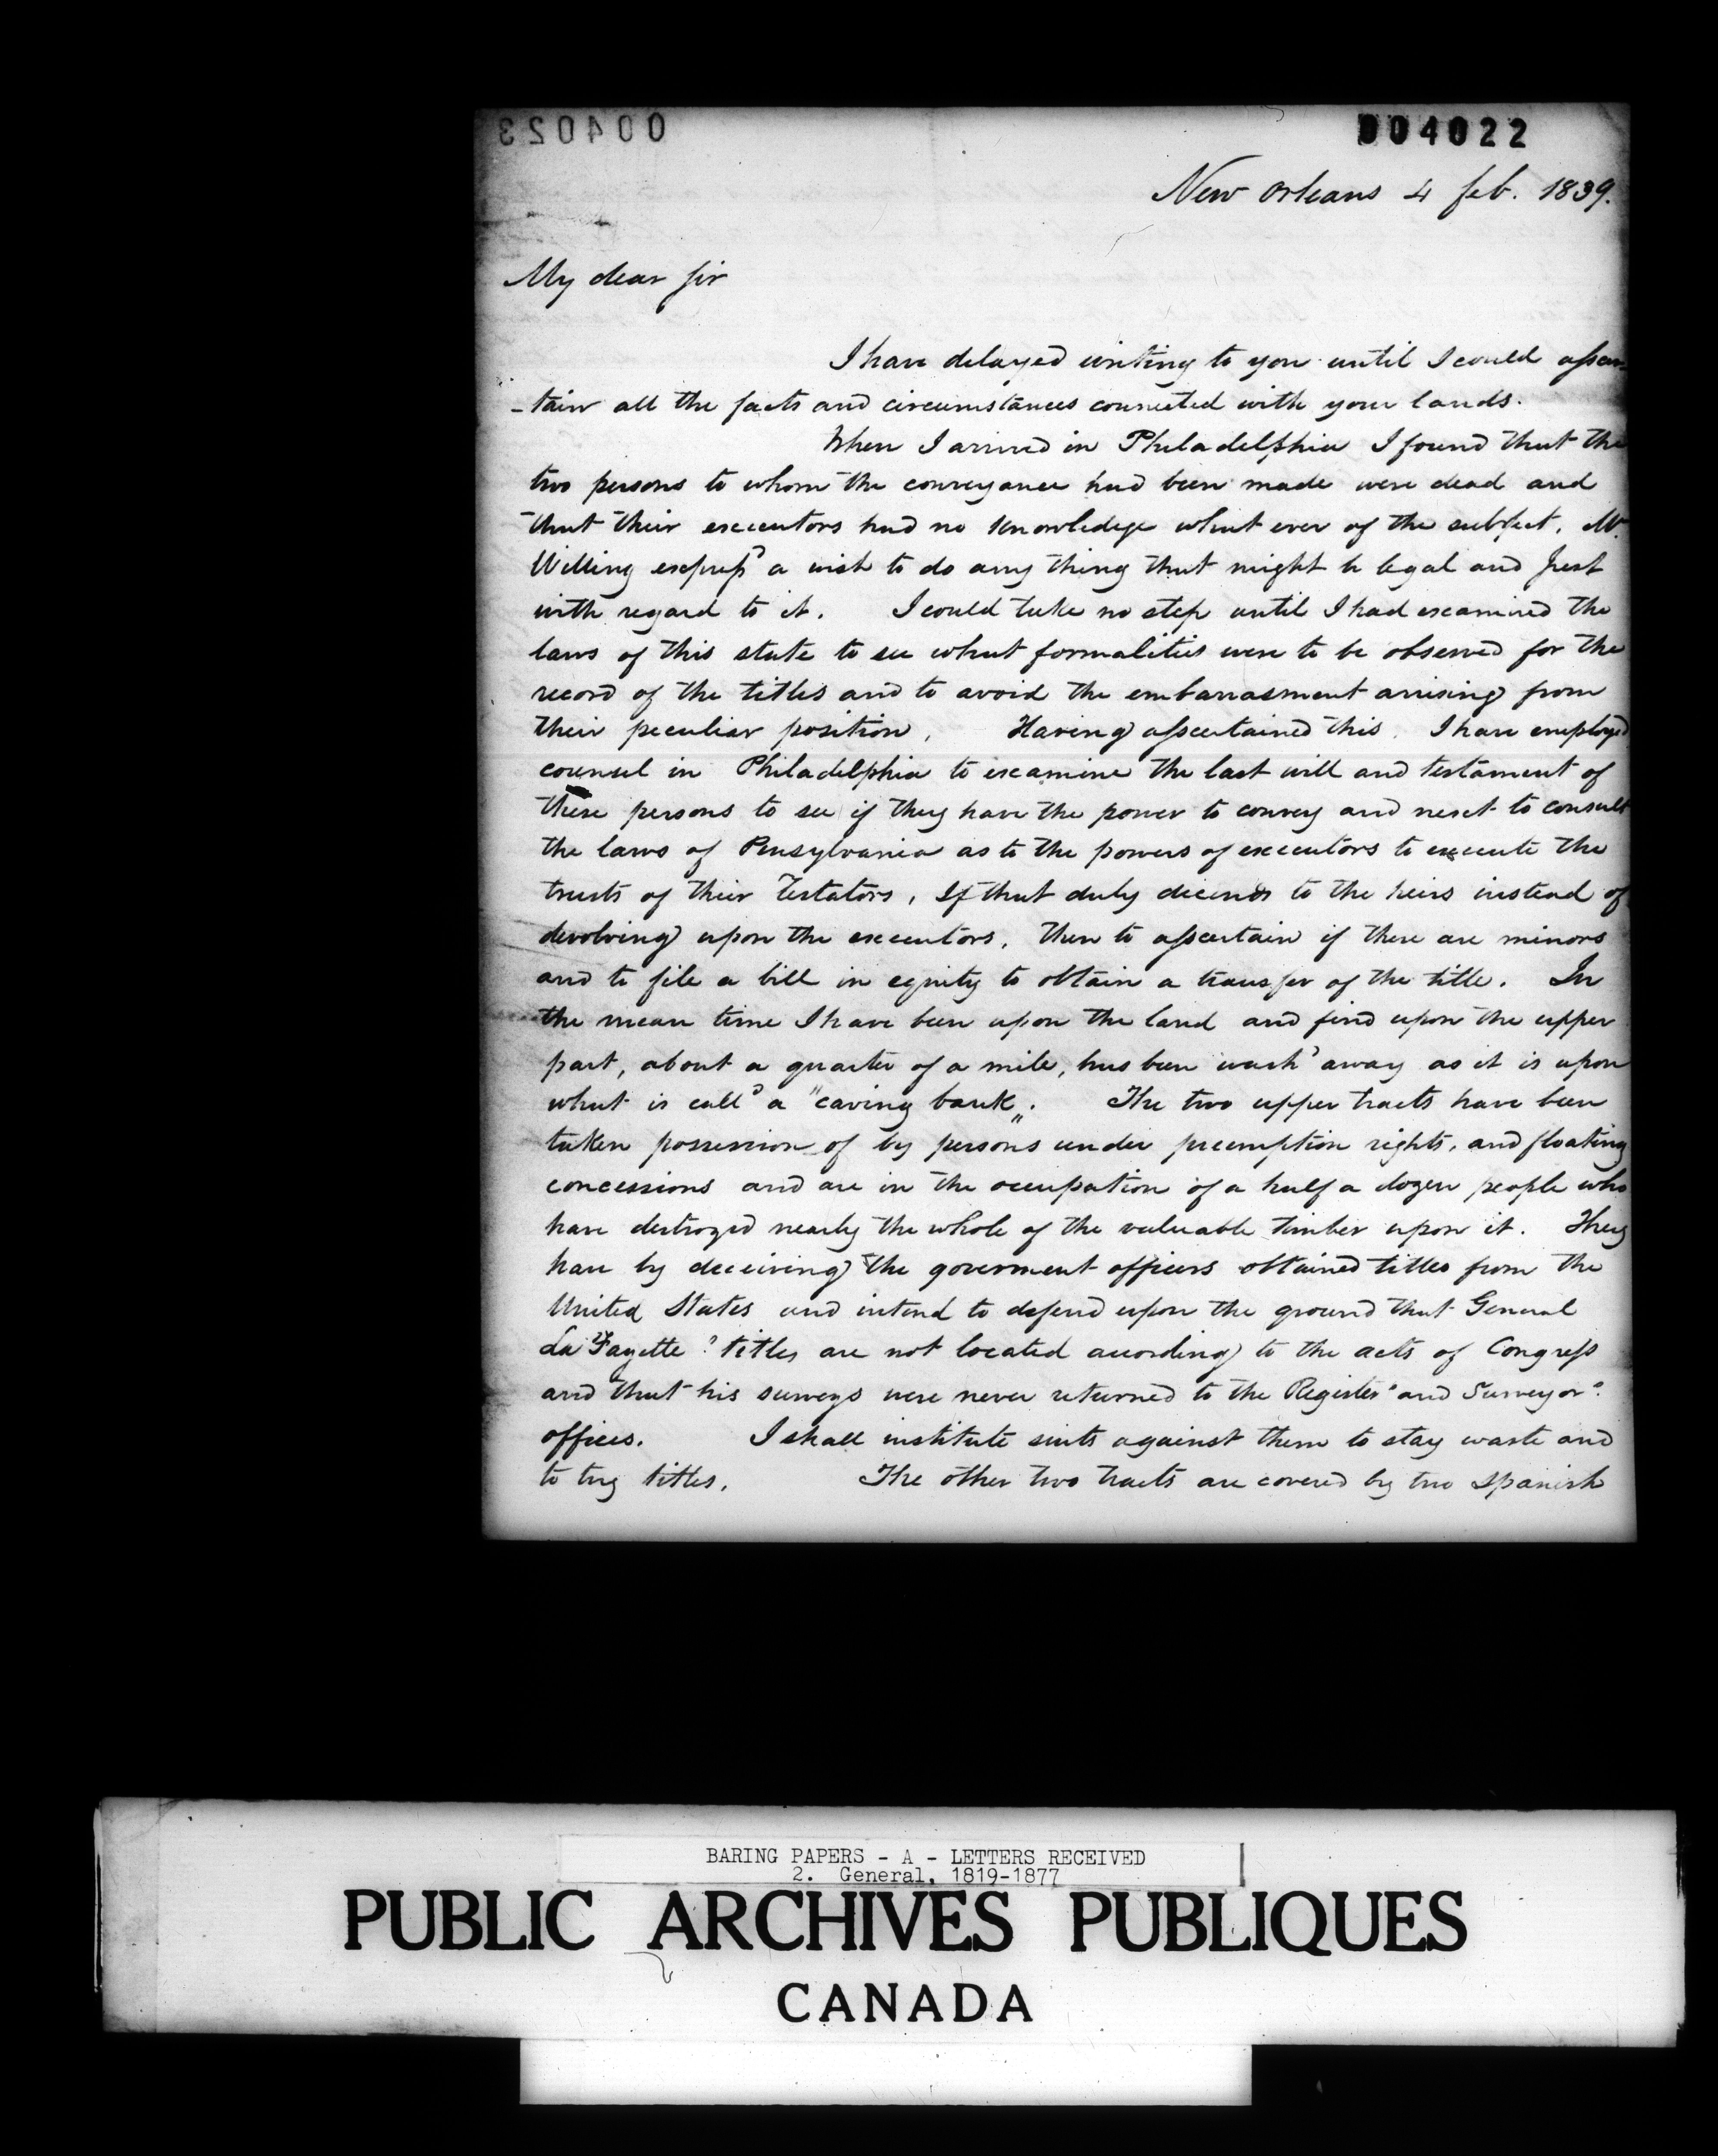 004023
004022
New Orleans 4 feb. 1839.
My dear Sir
I have delayed writing to you until I could ascer-
-tain all the facts and circumstances connected with your lands.
When I arrived in Philadelphia I found that the
two persons to whom the conveyance had been made were dead and
that their executors had no knowledge what ever of the subject. Mr.
Willing express'd a wish to do any thing that might be legal and just
with regard to it. I could take no step until I had examined the
laws of this state to see what formalities were to be observed for the
record of the titles and to avoid the embarrasment arrising from
their peculiar position. Having ascertained this. I have employed
counsel in Philadelphia to examine the last will and testament of
these persons to see if they have the power to convey and next to consult
the laws of Pensylvania as to the powers of executors to execute the
trusts of their Testators, If that duty decends to the heirs instead of
devolving upon the executors, then to ascertain if there are minors
and to file a bill in equity to obtain a transfer of the title. In
the mean time I have been upon the land and find upon the upper
part, about a quarter of a mile, has been wash'd away as it is upon
what is call'd a "caving bank". The two upper tracts have been
taken possession of by persons under preemption rights, and floating
concessions and are in the occupation of a half a dozen people who
have destroyed nearly the whole of the valuable timber upon it. They
have by deceiving the goverment officers obtained titles from the
United States and intend to defend upon the ground that General
La Fayette's titles are not located acording to the acts of Congress
and that his surveys were never returned to the Register's and Surveyor's
offices. I shall institute suits against them to stay waste and
to try titles. The other two tracts are covered by two Spanish
BARING PAPERS - A - LETTERS RECEIVED
2. General, 1819-1877
PUBLIC ARCHIVES PUBLIQUES
CANADA